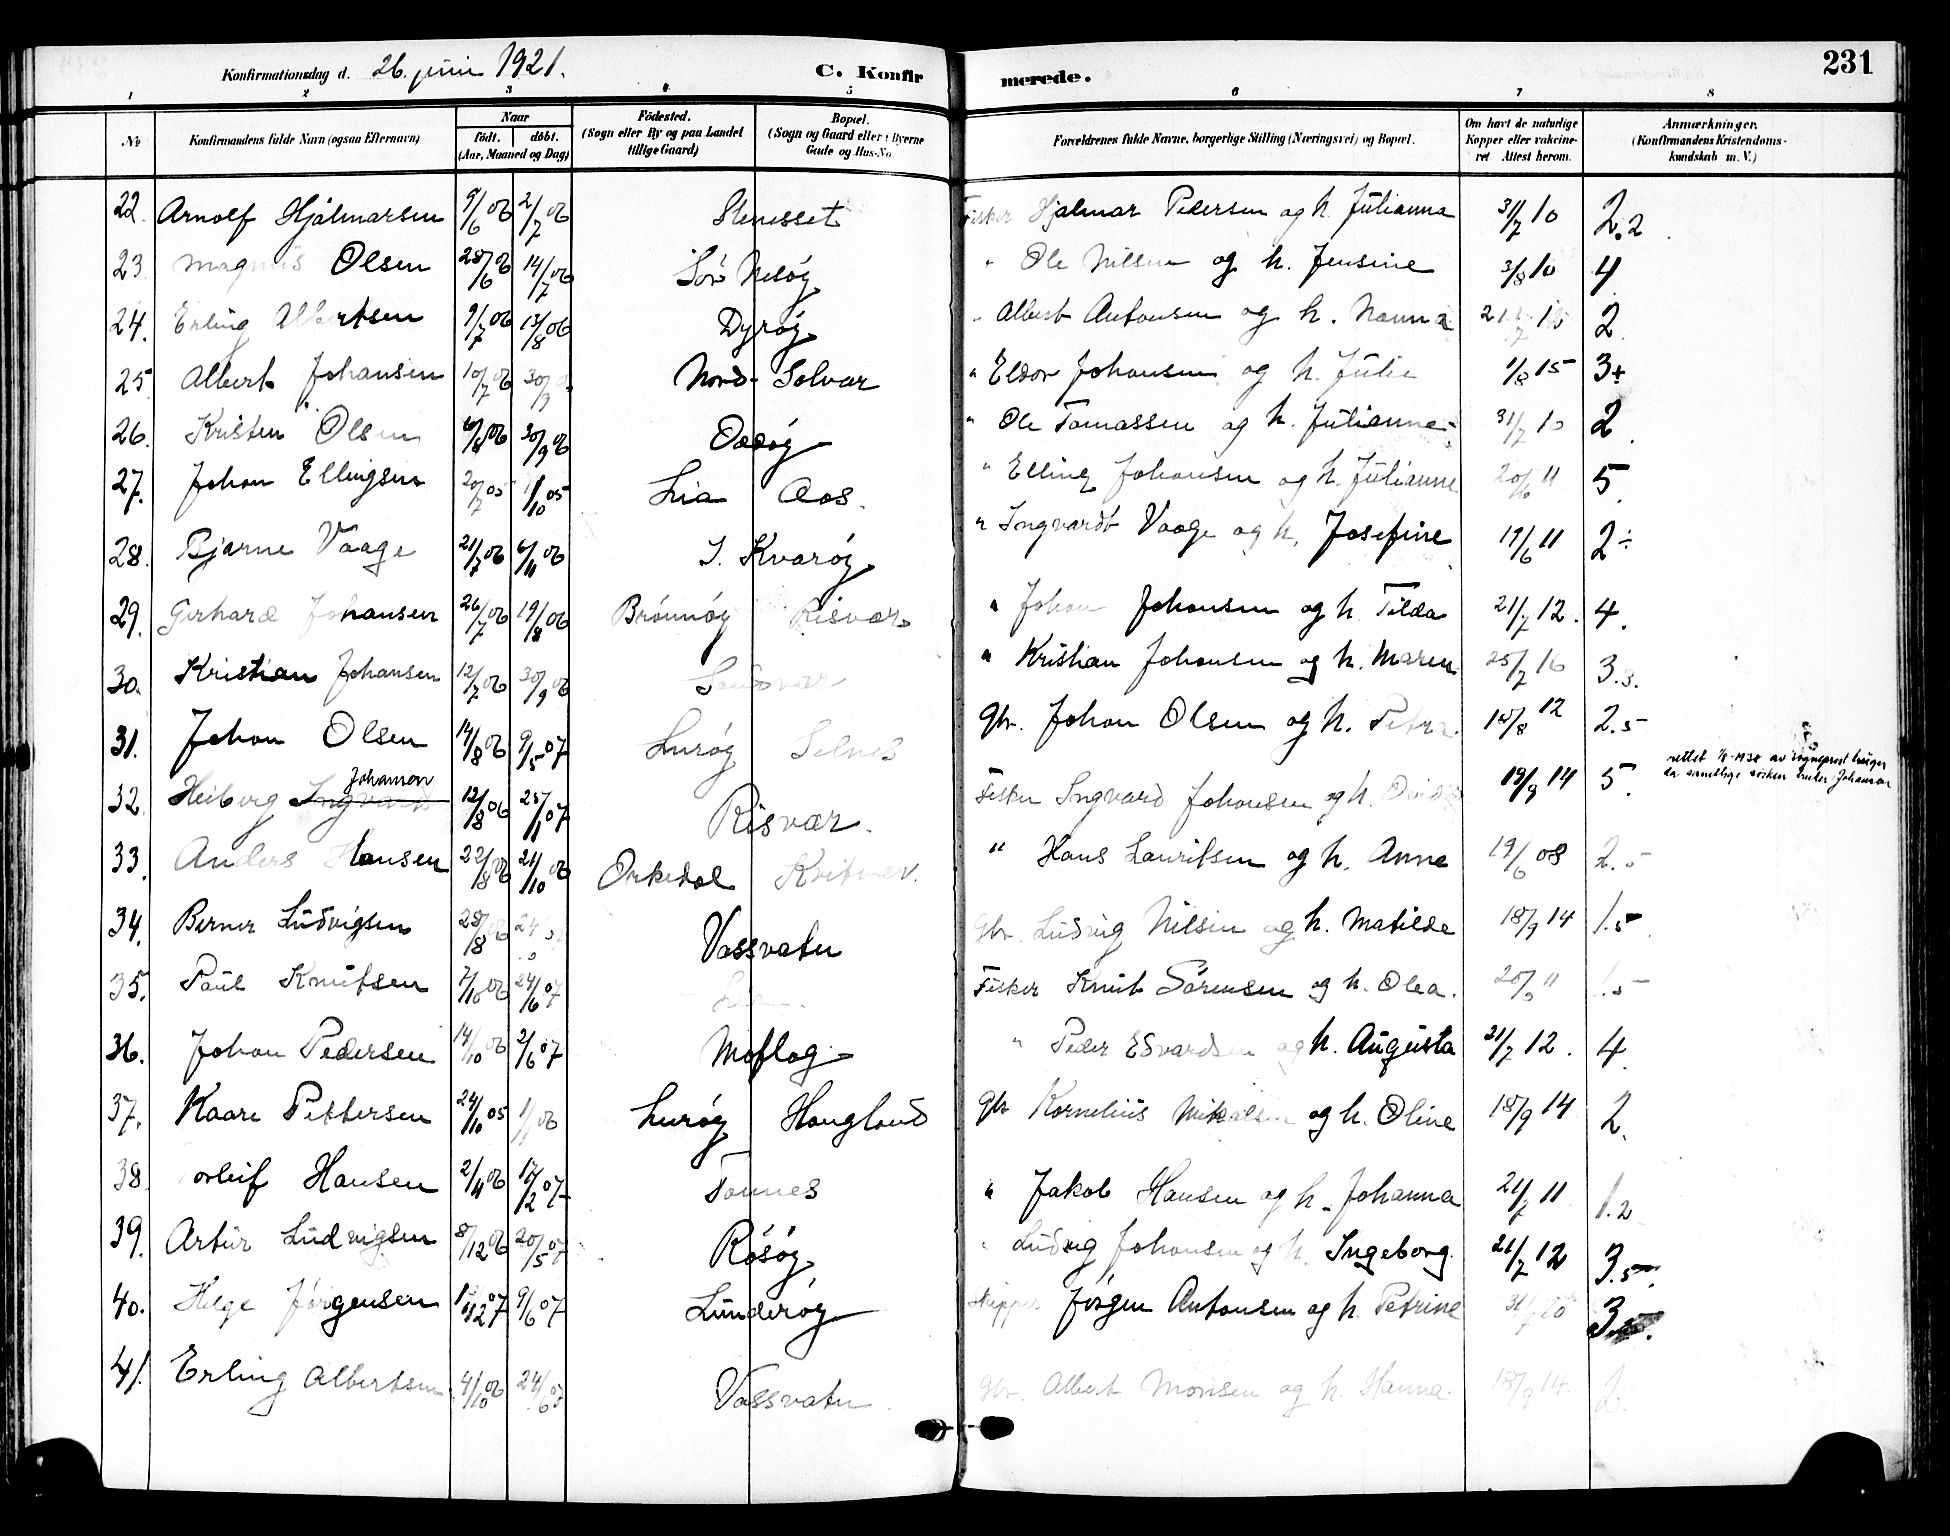 231
Konfirmationsdag d. 26. juni 1921. C. Konfirmerede.
1 2 3 4 5 6 7 8
No Konfirmandens fulde Navn (ogsaa Efternavn) Naar födt. döbt. (Aar, Maaned og Dag) Födested. (Sogn eller By og paa Landet tillige Gaard) Bopæl. (Sogn og Gaard eller i Byerne Gade og Hus-No. Forældrenes fulde Navne, borgerlige Stilling (Næringsvei) og Bopæl. Om havt de naturlige Kopper eller vakcineret Attest herom. Anmærkninger. (Konfirmandens Kristendomskundskab m. V.)
22. Arnolf Hjálmarsen 9/6 06 2/7 06 Stenesset Fisker Hjalmar Pedersen og h. Julianna 31/7 10 2.2
23. Magnus Olsen 28/6 06 14/7 06 Sör Nesöy " Ole Nilsen og h. Jensine 3/8 10 4
24. Erling Albertsen 9/7 06 13/8 06 Dyröy " Albert Antonsen og h. Nanna 2
25 Albert Johansen 10/7 06 30/9 Nord-Solvær " Eldor Johansen og h. Julie 1/8 15 3+
26. Kristen Olsen 30/9 06 " Ole Tomassen og h. Julianne 31/7 10 2
27. Johan Ellingsen 20/7 05 1/10 05 Lia Aas. " Elling Johansen og h. Julianne 11 5.
28. Bjarne Vaage 21/7 06 6/11 06 I. Kvaröy " Ingvardt Vaage og h. Josefine 19/6 11 2÷
29. Gerhard Johansen 26/7 06 19/8 06 Brönnöy Risvær " Johan Johansen og h. Tilda 21/7 12. 4.
30. Kristian Johansen 12/7 06 30/9 06 " Kristian Johansen og h. Maren 25/7 16 3.3.
31. Johan Olsen 14/8 06 9/5 07 Luröy Selnes Gbr. Johan Olsen og h. 12 2.5
32. Heiberg Ingvard Johanson 12/8 06 25/1 07 Risvær. Fisker Ingvard Johansen og h. 19/9 14 5. rettet 1/8-1938 av sogneprest
da samtlige sösken heter Johanson
33. Anders Hansen 22/8 06 21/10 06 Orkedal " Hans Lauritsen og h. Anne 19/6 08 2.5
34. Berner Ludvigsen 28/8 06 Vassvatn Gbr. Ludvig Nilsen og h. Matilde 18/9 14 1.5
35. Paul Knutsen 7/10 06 24/6 07 Fisker Knut Sörensen og h. Olea. 20/9 11 1.5
36. Johan Pedersen 14/10 06 2/6 07 Moflag " Peder Edvardsen og h. Augusta 21/7 12. 4.
37. Kaare Pettersen 24/10 05 1/1 06 Luröy Haugland Gbr Kornelius Mikalsen og h. Oline 18/9 14 2.
38 orleif Hansen 2/11 06 17/2 07 Tonnes " Jakob Hansen og h. Johanna 21/7 11 1.2
39. Artur Ludvigsen 8/12 06 20/5 07 Rösöy " Ludvig Johansen og h. Ingeborg. 21/7 12 3.5
40. Helge Jörgensen 07 9/6 07 Lunderöy Skipper Jörgen Antonsen og h. Petrine 3.
41. Erling Albertsen 4/10 06 24/6 07 Vassvatn Gbr. Albert Monsen og h. Hanna. 18/9 14. 2.